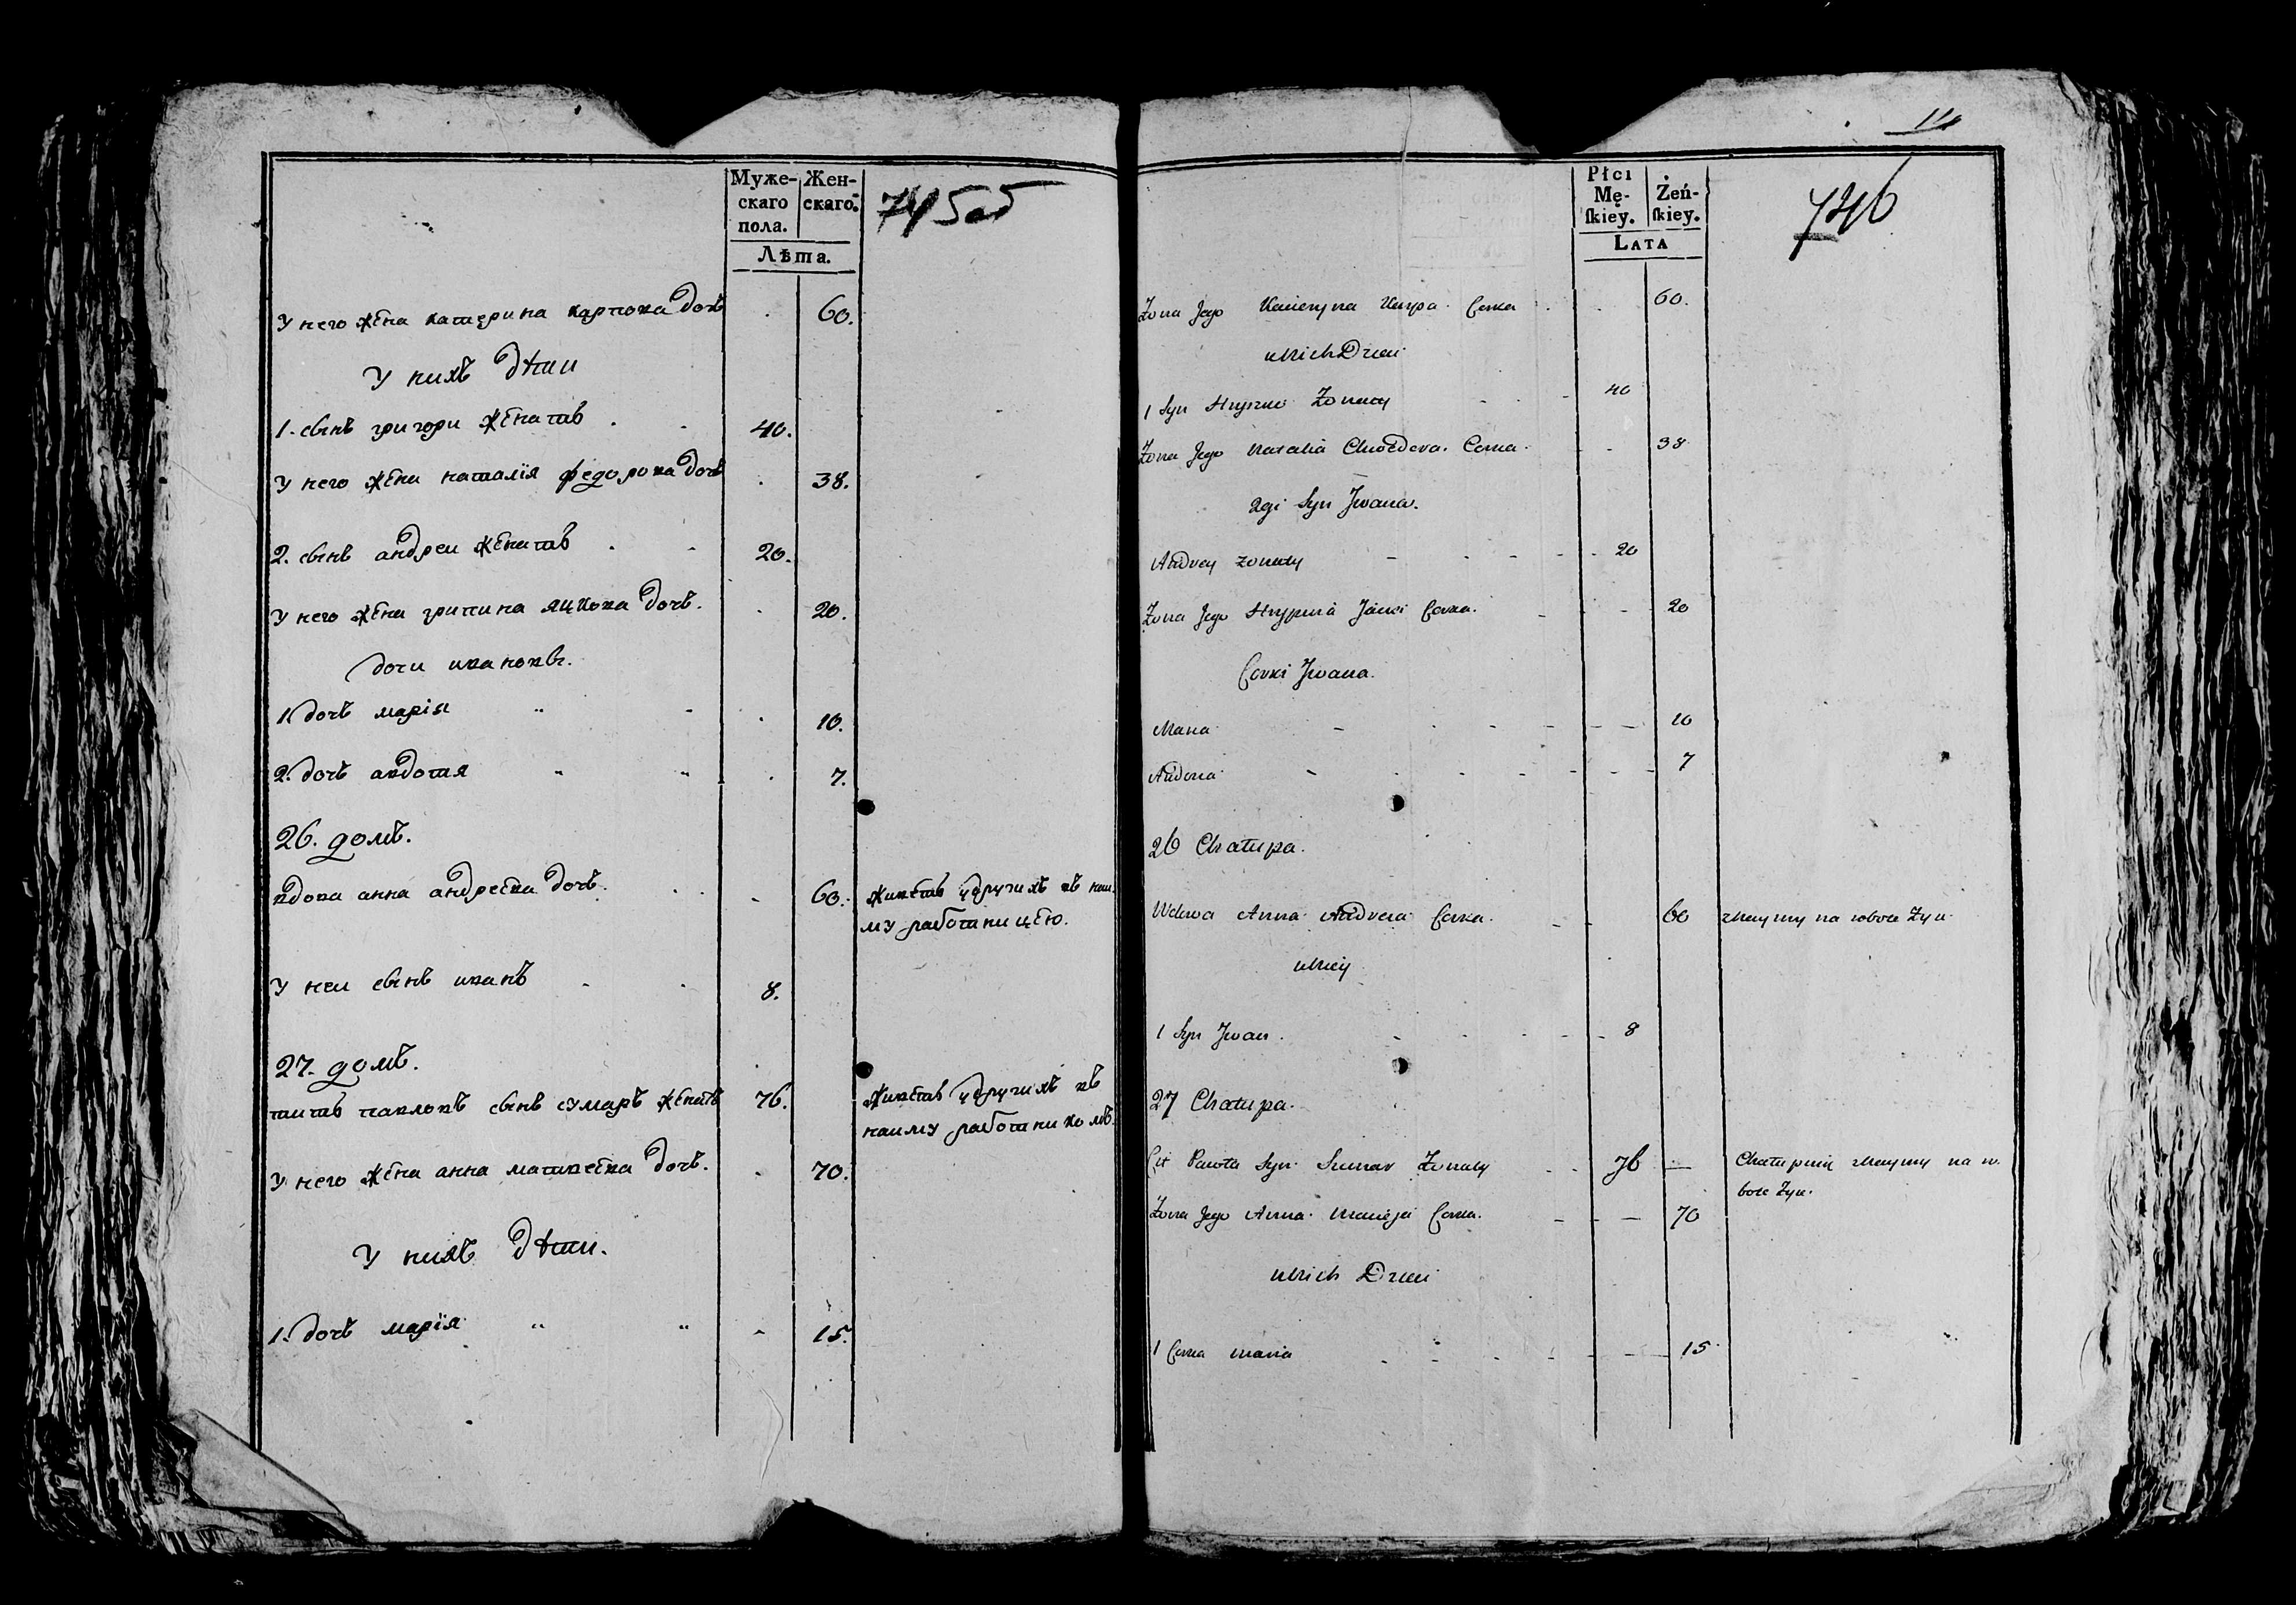 Муже-
скаго
пола.
Жен-
скаго.
Лѣта.
745об
У него жена катерина карпова дочь 60.
У нихъ дѣти
1. сынъ григори женатъ 40.
У него жена наталія федорова дочь 38.
2. сынъ андреи женатъ 20.
У него жена грипина яцкова дочь. 20.
дочи ивановы.
1. дочь марія 10.
2. дочь авдотя 7.
26. домъ.
вдова анна андреева дочь. 60.
живетъ удругихъ въ наи
му работницею.
У неи сынъ иванъ 8.
27. домъ.
титъ павловъ сынъ сумаръ женатъ 76.
живетъ удругихъ въ
наиму работникомъ.
У него жена анна матвеева дочь. 70.
У нихъ дѣти.
1. дочь марія 15.
Płci
Mę-
skiey.
Żeń-
skiey.
LATA
746
Zona Jego Kateryna Karpa Corka 60.
u Nich Dzieci
1 Syn Hryszko Zonaty 40
Zona Jego Natalia Corka 38
2gi Syn Jwana.
Andrey zonaty 20
Zona Jego Hrypina Jacki Corka. 20
Corki Jwana.
Maria 10
7
26 Chałupa.
Wdowa Anna Andreia Corka. 60
na robocie Zyie
u Niey
1 Syn Jwan. 8
27 Chałupa.
Cit Pawła Syn Sumar Zonaty 76
na ro-
bocie Zyie.
Zona Jego Anna Macieja Corka. 70
u Nich Dzieci
1 Corka Maria 15